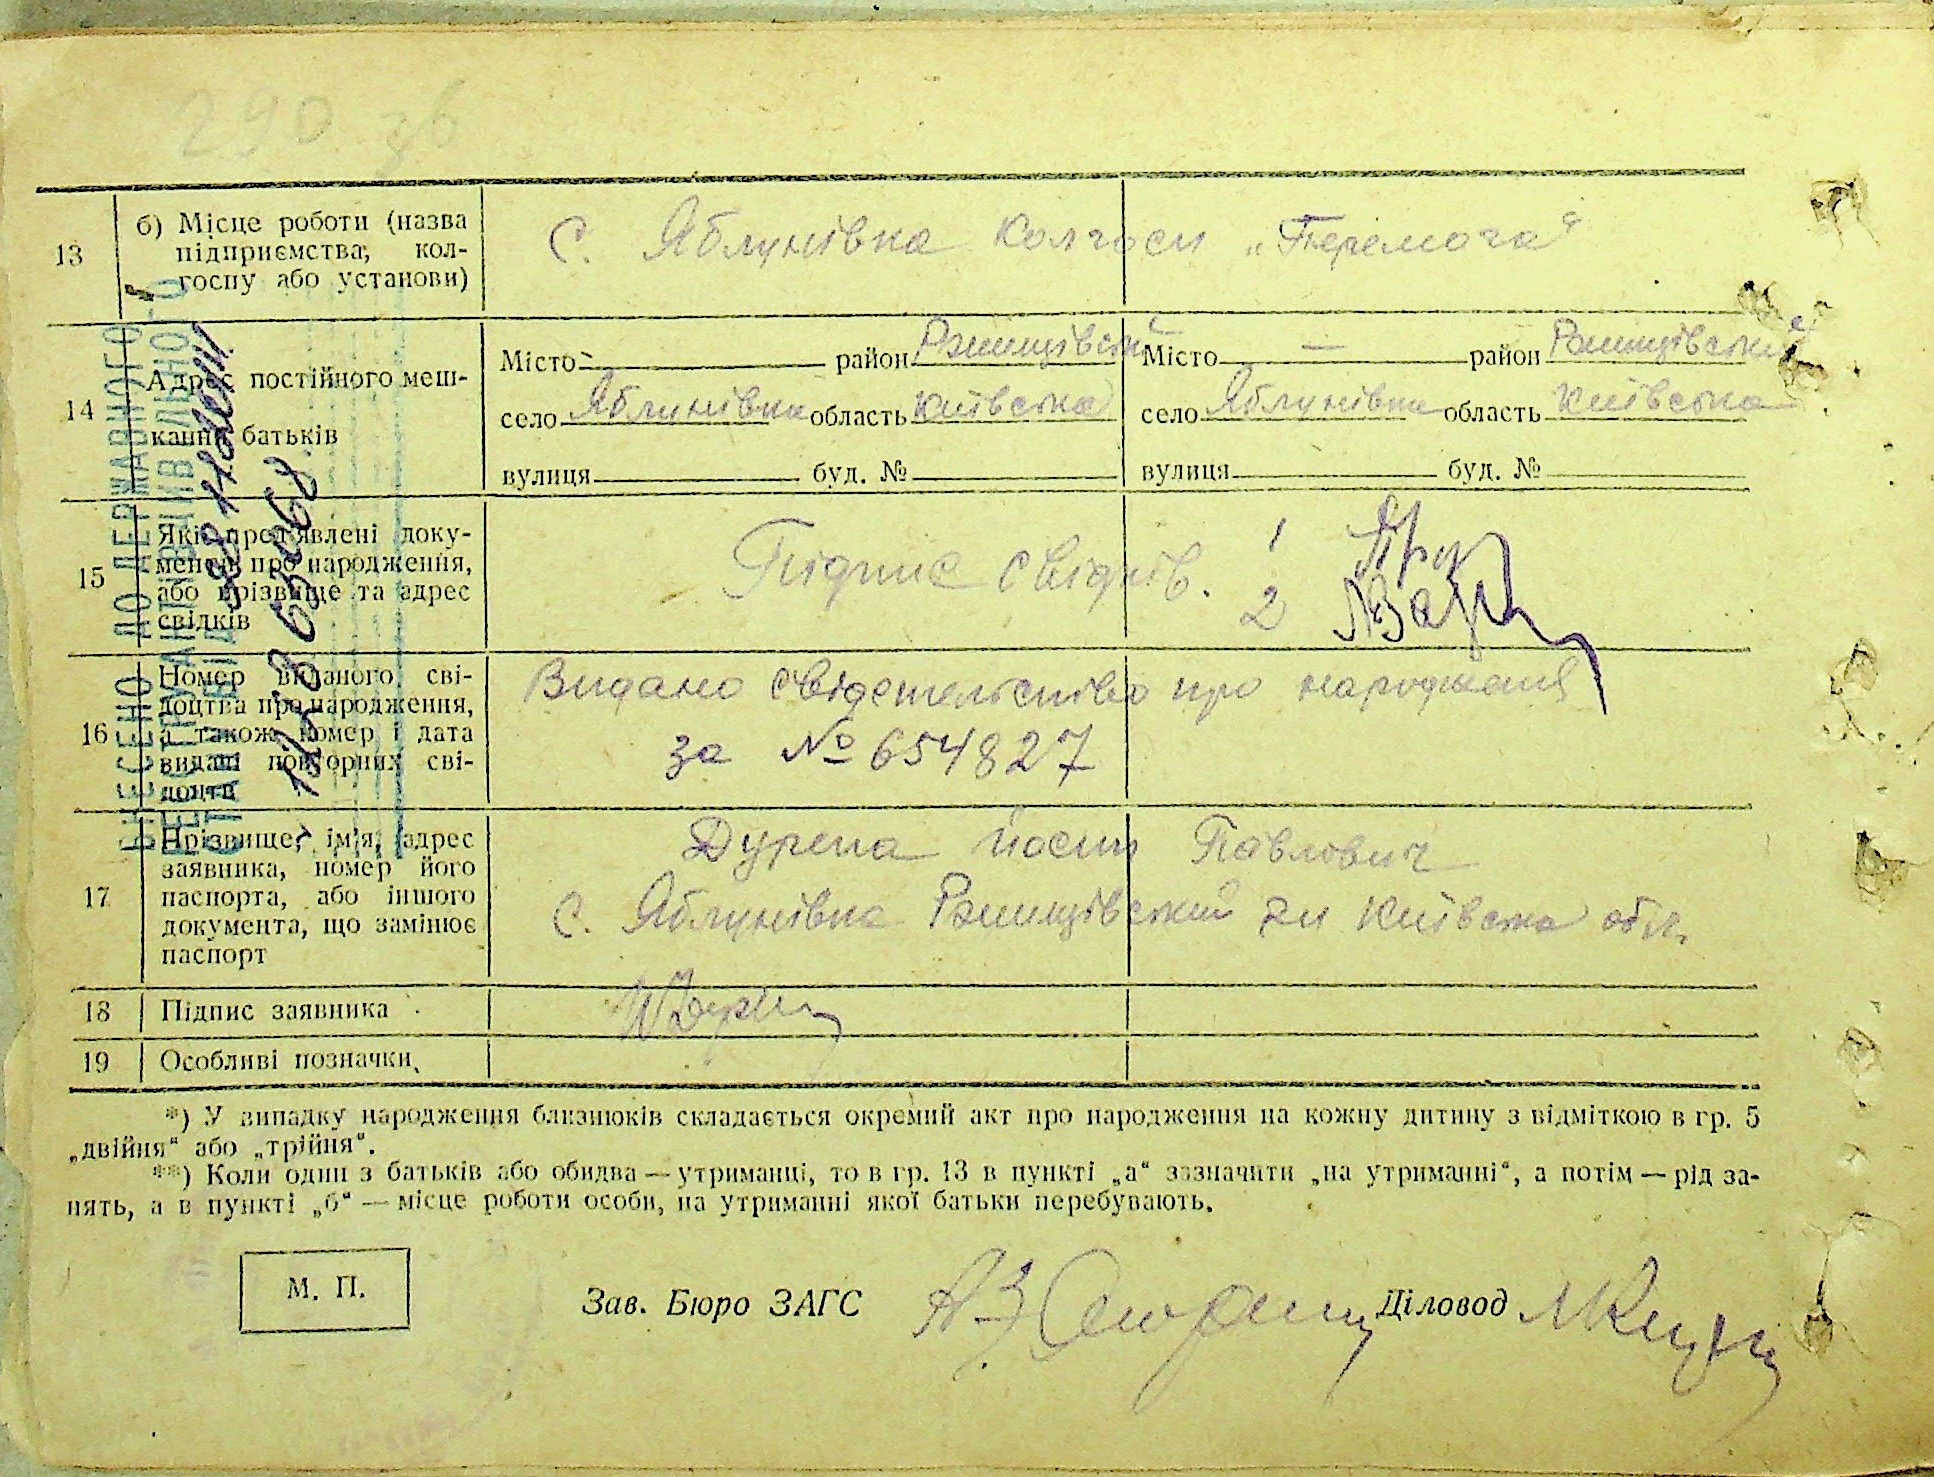 290 зв
13
б) Місце роботи (назва
підприємства, кол-
госпу або установи)
С. Яблунівка Колгосп „Перемога“
14
Адрес постійного меш-
кання батьків
Місто — район Ржищівський
село Яблунівка область Київська
вулиця буд. №
Місто — район Ржищівський
село Яблунівка область Київська
вулиця буд. №
15
Які пред'явлені доку-
менти про народження,
або прізвище та адрес
свідків
Підпис свідків. 1
2
16
Номер виданого сві-
доцтва про народження,
а також номер і дата
видачі повторних сві-
доцтв
Видано свідетельство про народженя
за № 654827
17
Прізвище, ім'я, адрес
заявника, номер його
паспорта, або іншого
документа, що замінює
паспорт
Дурепа Йосип Павлович
С. Яблунівка Ржищівський Київська обл.
18 Підпис заявника
19 Особливі позначки
ВНЕСЕНО ДО ДЕРЖАВНОГО
РЕЄСТРУ АКТІВ ЦИВІЛЬНОГО
СТАНУ ВІД
*) У випадку народження близнюків складається окремий акт про народження на кожну дитину з відміткою в гр. 5
„двійня“ або „трійня“.
**) Коли один з батьків або обидва — утриманці, то в гр. 13 в пункті „а“ зазначити „на утриманні“, а потім — рід за-
нять, а в пункті „б“ — місце роботи особи, на утриманні якої батьки перебувають.
М. П.
Зав. Бюро ЗАГС
Діловод